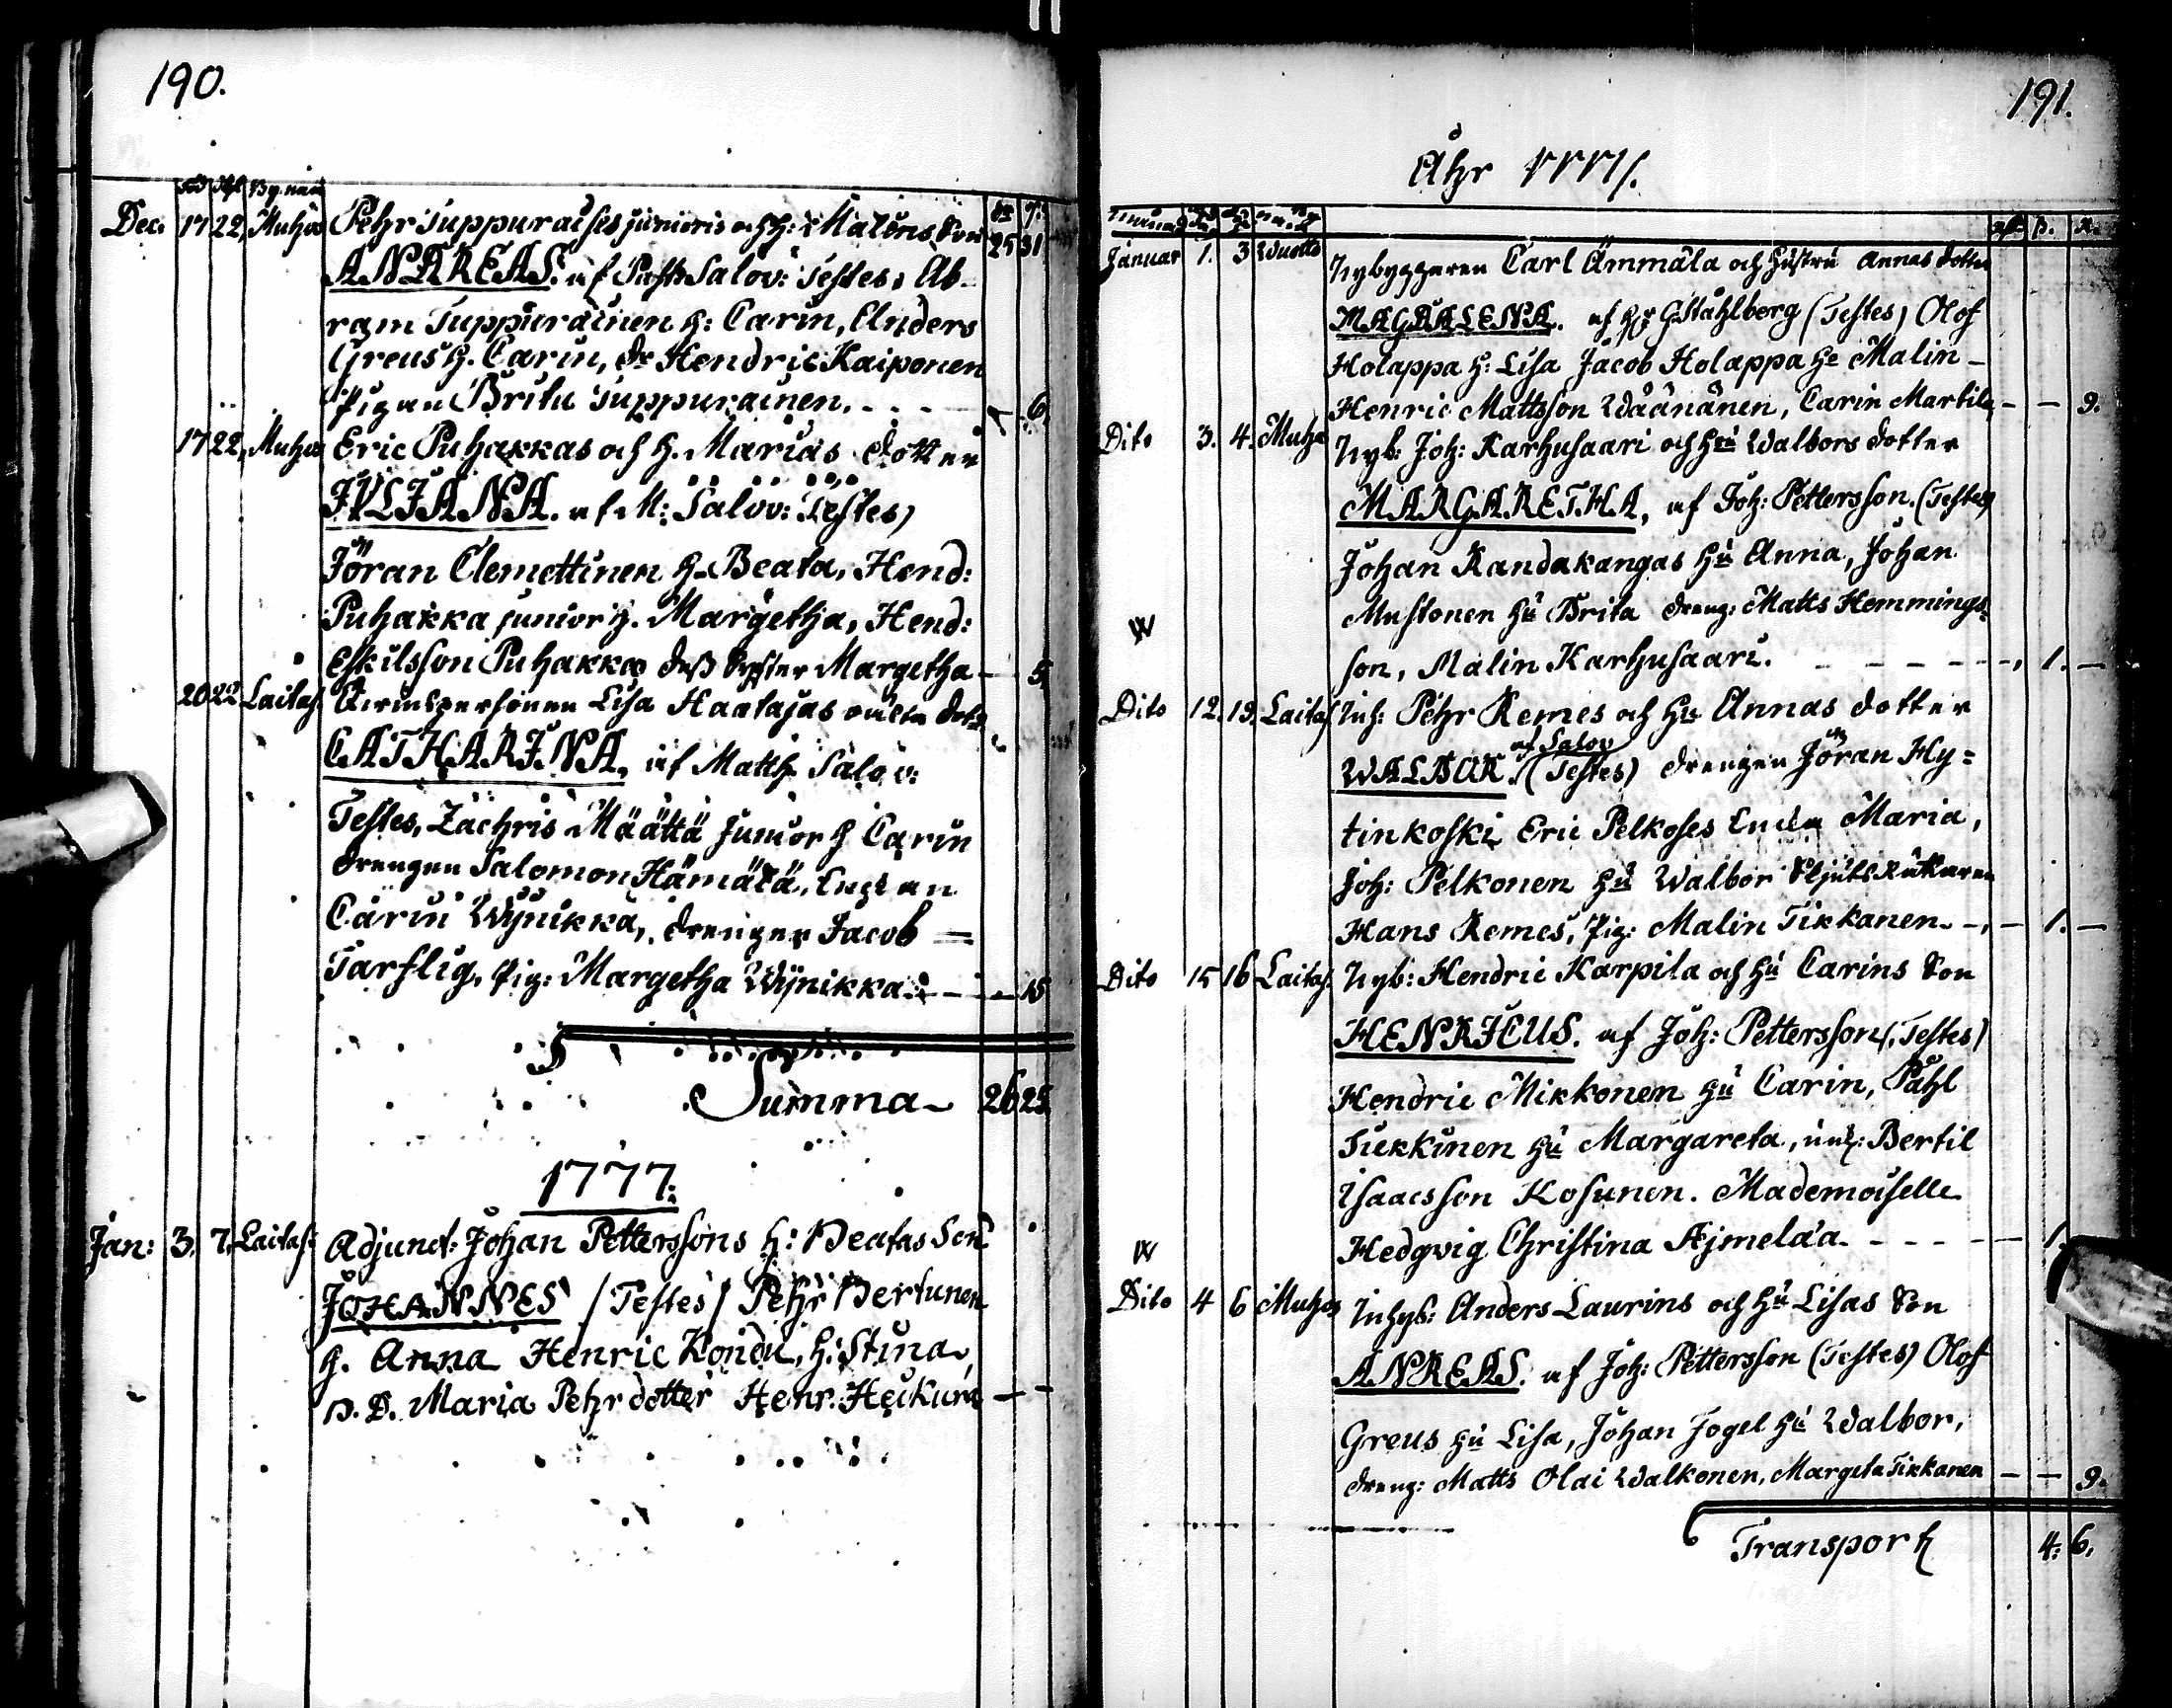 190.
Född Döpt By. namn
Dec. 17 22, Muhos Pehr Tuppuraises junioris och h: Malins Son 25 31
ANDREAS. af Past: Salov: Testes, Ab-
ram Tuppurainen h: Carin, Anders
Greus h. Carin, dr Hendric Kaiponen
Pigan Brita Tuppurainen. - - - 6
17 22, Muhos Eric Puhakkas och h. Marias dotter
JULIANA. af M: Salov: Testes)
Jöran Clemettinen h. Beata, Hend:
Puhakka junior h. Margetha, Hend:
Eskilsson Puhakka dess Syster Margetha - 5,
20 22 Laitas: Lisa Haatajas dott:
CATHARINA, af Matth Salov:
Testes, Zachris Määttä Junior h Carin
drengen Salomon Hämälä, Enkan
Carin Wynikka, drengen Jacob =
Tarflig, Pig: Margetha Wynikka - - - 15
Summa - 26 25
1777.
Jan: 3. 7. Laitas: Adjunct: Johan Petterssons h: Beatas Son
JOHANNES /Testes/ Pehr Hertunen
h. Anna Henric Kondu, h: Stina,
D. D. Maria Pehrdotter Henr. Heikura - -
191.
Åhr 1777/.
Januar 1. 3 Wuotto Nybyggaren Carl Ämmälä och hustru Annas dotter
MAGDALENA. af Hr G Ståhlberg (Testes) Olof
Holappa h: Lisa Jacob Holappa h: Malin -
Henric Mattsson Wäänänen, Carin Martila - - 9.
Dito 3. 4. Muhos Nyb: Joh: Karhusaari och hu Walbors dotter
MARGARETHA, af Joh: Pettersson. (Testes)
Johan Kandakangas hu Anna, Johan
Mustonen hu Brita dreng: Matts Hemmings-
W
son, Malin Karhusaari. - - - - - - 1. -
Dito 12. 13. Laitas Inh: Pehr Remes och hu Annas dotter
af Salov
WALBOR. (Testes) drengen Jöran Hy=
tinkoski Eric Pelkoses Enka Maria,
Joh: Pelkonen hu Walbor Skjutsrättaren
Hans Remes, Pig: Malin Tikkanen - - - 1. -
Dito 15 16 Laitas: Nyb: Hendric Karpila och hu Carins Son
HENRICUS. af Joh: Pettersson (Testes)
Hendric Mikkonen hu Carin, Påhl
Tukkinen hu Margareta, ung: Bertil
Isaacsson Kosunen. Mademoiselle
Hedgvig Christina Ajmelæa. - - - - - 1.
W
Dito 4 6 Muhos Inhys: Anders Laurins och hu Lisas Son
ANREAS. af Joh: Pettersson (Testes) Olof
Greus hu Lisa, Johan Fogel hu Walbor,
dreng: Matts Olai Walkonen, Margeta Tikkanen - - 9.
Transport 4: 6.